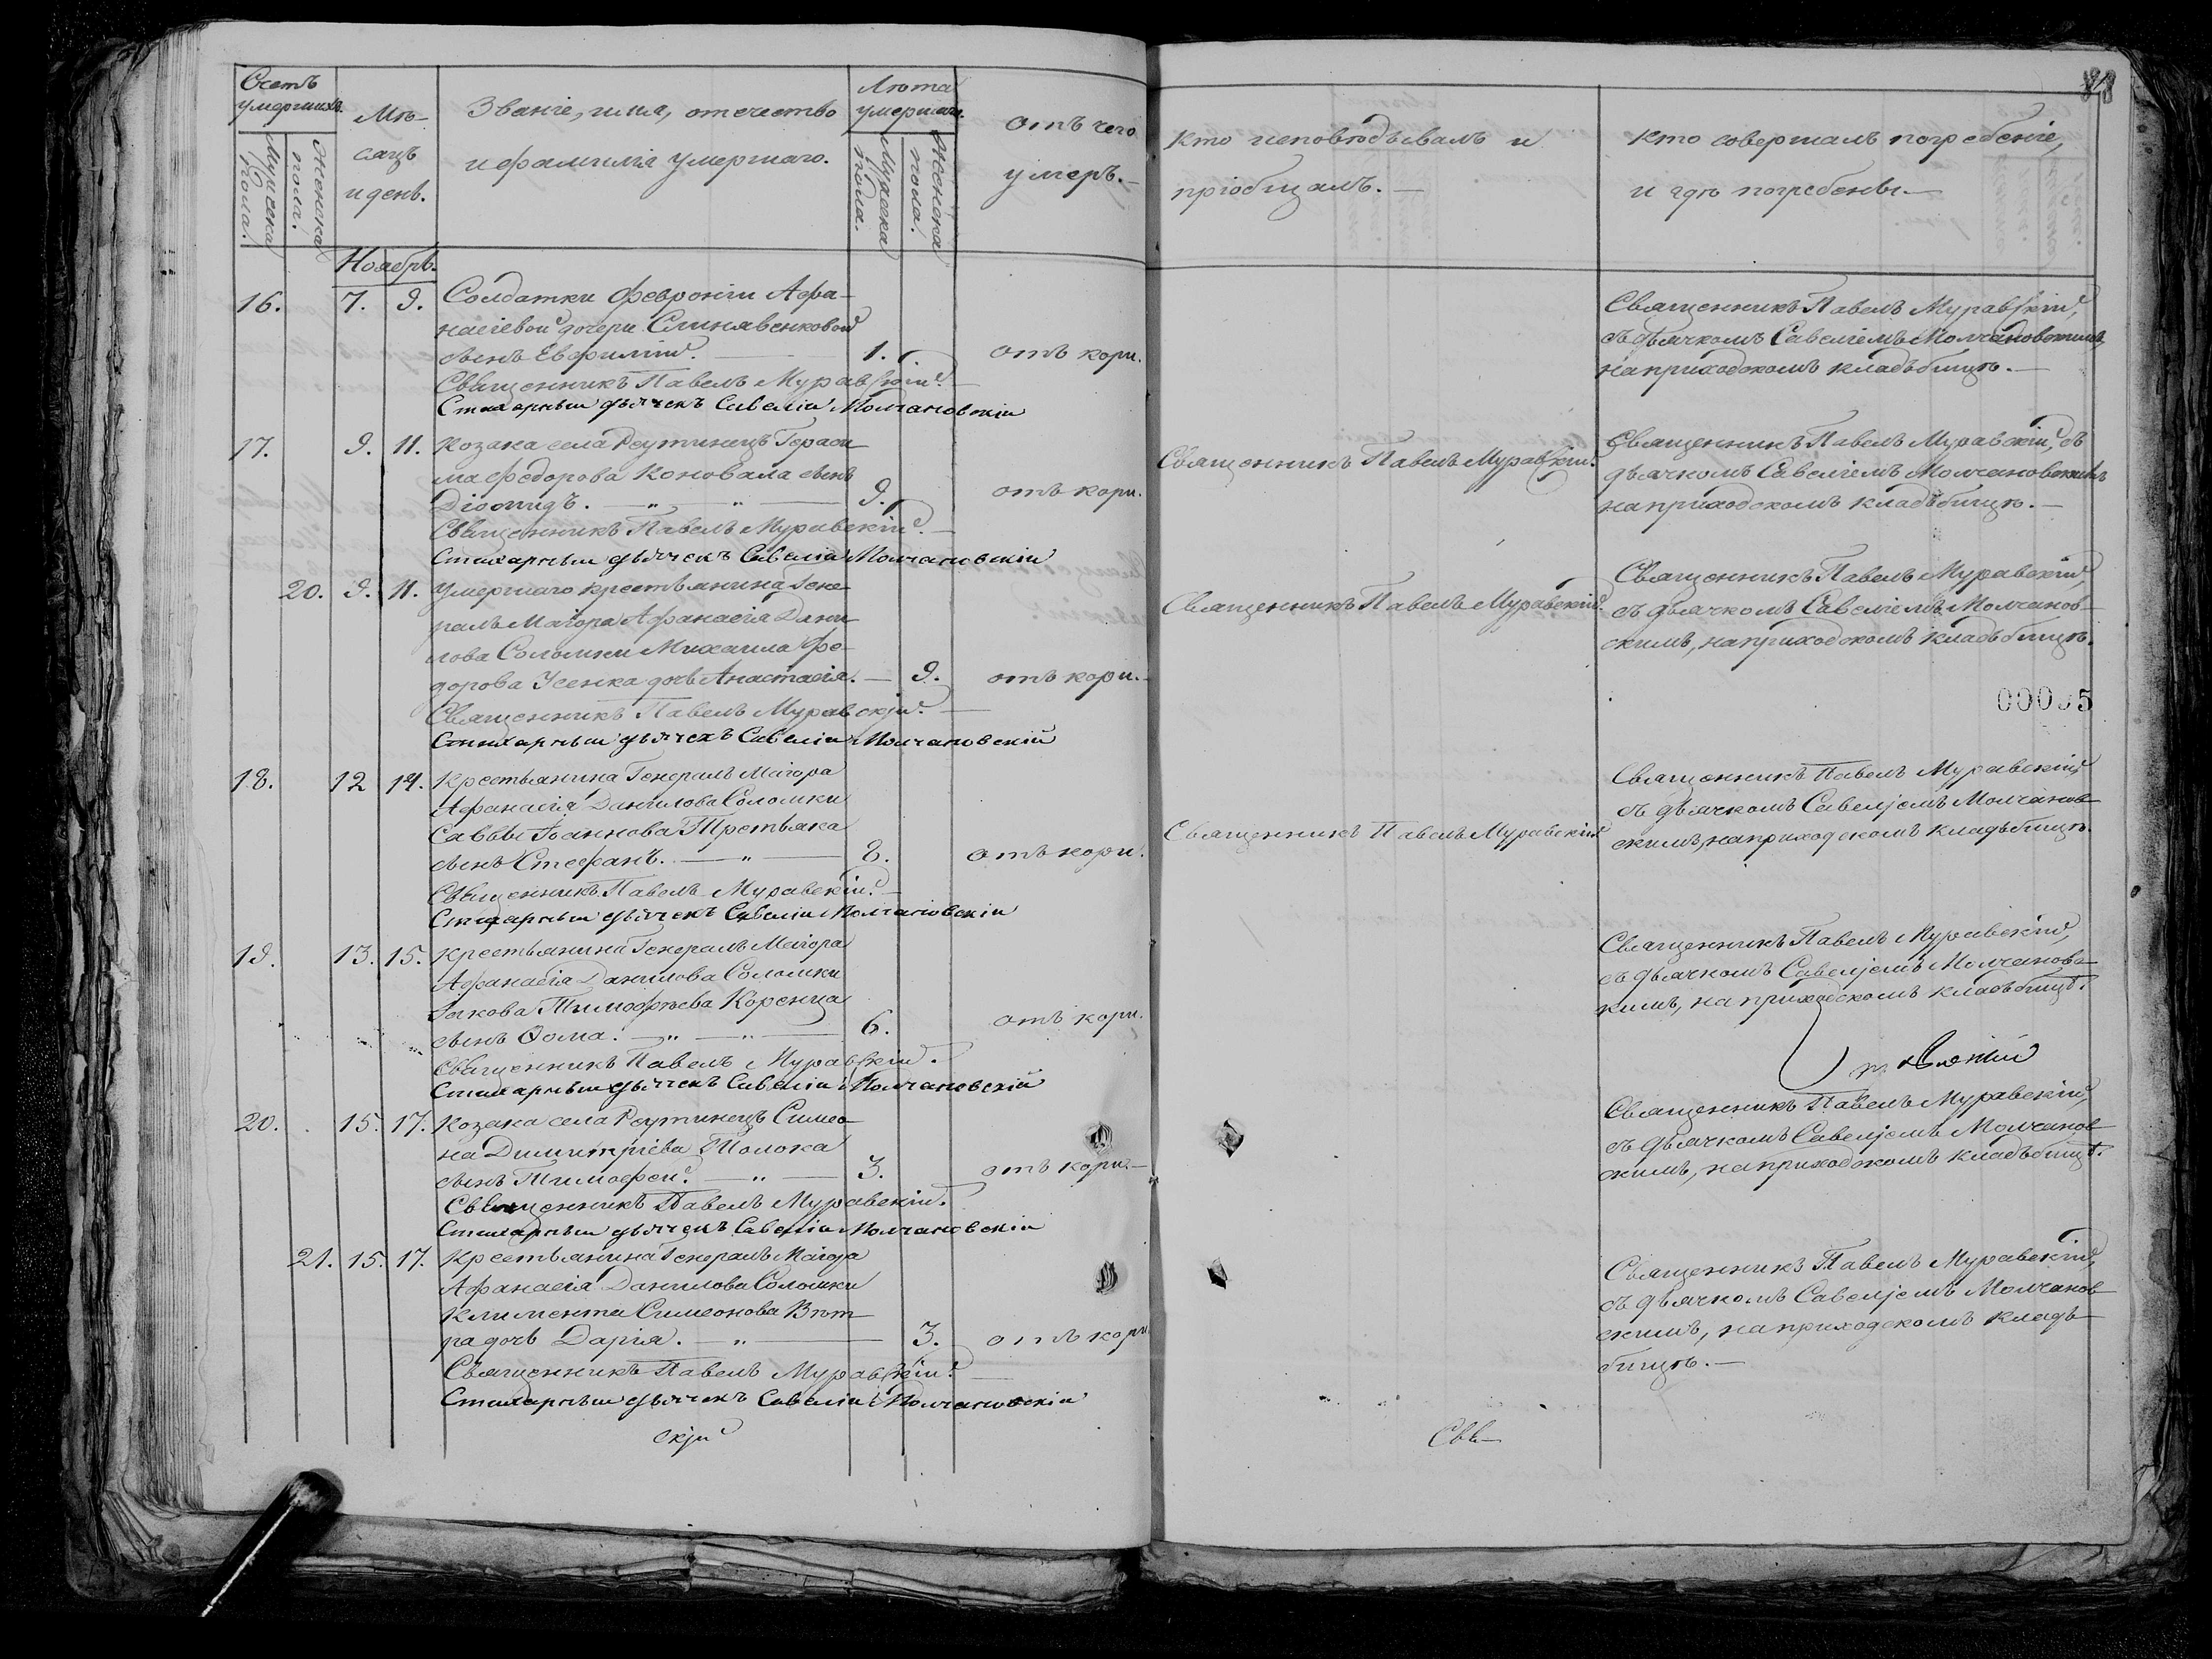 Счетъ умершихъ.
Мужеска пола.
Женска пола.
Мѣ-
сяцъ
и день.
Званіе, имя, отечество
и фамилія умершаго.
Лѣта умершаго.
Мужеска пола.
Женска пола.
отъ чего
умеръ.—
кто исповѣдывалъ и
пріобщалъ.—
кто совершалъ погребеніе,
и гдѣ погребены.—
88
Ноябрь.
16. 7. 9. Солдатки Февроніи Афа-
насіевой дочери Слинявенковой
сынъ Евфимій. — 1. отъ кори.
Священникъ Павелъ Муравскій.—
Стихарный дьячекъ Савелій Молчановскій
Священникъ Павелъ Муравскій,
съ дьячкомъ Савеліемъ Молчановскимъ,
на приходскомъ кладъбищѣ.—
17. 9. 11. Козака села Реутинецъ Гераси
ма Федорова Коновала сынъ
Діомидъ. —„ „— 9. отъ кори.
Священникъ Павелъ Муравскій.—
Стихарный дьячекъ Савелій Молчановскій
Священникъ Павелъ Муравскій.
Священникъ Павелъ Муравскій, съ
дьячкомъ Савеліемъ Молчановскимъ
на приходскомъ кладъбищѣ.—
20. 9. 11. Умершаго крестьянина Гене-
ралъ Маіора Афанасія Дани
лова Соломки Михаила Фе-
дорова Усенка дочь Анастасія.— 9. отъ кори.—
Священникъ Павелъ Муравскій.—
Стихарный дьячекъ Савелій Молчановскій
Священникъ Павелъ Муравскій.
Священникъ Павелъ Муравскій,
съ дьячкомъ Савеліемъ Молчанов-
скимъ, на приходскомъ кладъбищѣ.
18. 12 14. Крестьянина Генералъ Маіора
Афанасія Данилова Соломки
Саввы Іоаннова Третьяка
сынъ Стефанъ. —„— 8. отъ кори.
Священникъ Павелъ Муравскій.—
Стихарный дьячекъ Савелій Молчановскій
Священникъ Павелъ Муравскій
Священникъ Павелъ Муравскій
съ дьячкомъ Савеліемъ Молчанов-
скимъ, на приходскомъ кладъбищѣ.
19. 13. 15. Крестьянина Генералъ Маіора
Афанасія Данилова Соломки
Іакова Тимофѣева Коренца
сынъ Ѳома. —„—„— 6. отъ кори.
Священникъ Павелъ Муравскій.
Стихарный дьячекъ Савелій Молчановскій
Священникъ Павелъ Муравскій,
съ дьячкомъ Савеліемъ Молчановс-
кимъ, на приходскомъ кладъбищѣ.
20. 15. 17. Козака села Реутинецъ Симео-
на Димитріева Толока
сынъ Тимофей. —„— 3. отъ кори.—
Священникъ Павелъ Муравскій.
Стихарный дьячекъ Савелій Молчановскій
Священникъ Павелъ Муравскій,
съ дьячкомъ Савеліемъ Молчанов-
скимъ, на приходскомъ кладъбищѣ.
21. 15. 17. Крестьянина Генералъ Маіора
Афанасія Данилова Соломки
Климента Симеонова Вѣт-
ра дочь Дарія. —„— 3. отъ кори
Священникъ Павелъ Муравскій.—
Стихарный дьячекъ Савелій Молчановскій
Священникъ Павелъ Муравскій,
съ дьячкомъ Савеліемъ Молчанов-
скимъ, на приходскомъ кладъ-
бищѣ.—
скій
Свя—